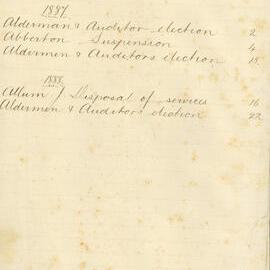 1887
Alderman & Auditor election 2
Abberton Suspension 4
Aldermen & Auditors election 15
1888
Allum J. Disposal of services 16
Aldermen & Auditors election 22